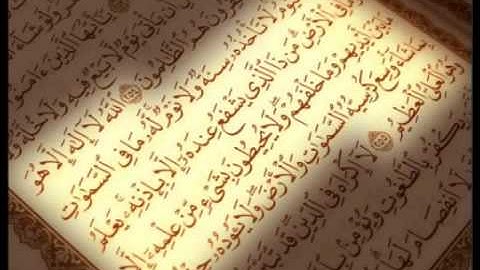 يَـٰٓأَيُّهَا ٱلَّذِينَ ءَامَنُوٓا۟
يَأْتِىَ يَوْمٌ لَّا بَيْعٌ فِيهِ وَلَا خُلَّةٌ
هُمُ ٱلظَّـٰلِمُونَ ٢٥٤ ٱللَّهُ لَآ إِلَـٰهَ إِلَّا هُوَ
لَا تَأْخُذُهُۥ سِنَةٌ وَلَا نَوْمٌ لَّهُۥ مَا فِى ٱلسَّمَـٰوَٰتِ
ٱلْأَرْضِ مَن ذَا ٱلَّذِى يَشْفَعُ عِندَهُۥٓ إِلَّا بِإِذْنِهِۦ يَعْلَمُ
أَيْدِيهِمْ وَمَا خَلْفَهُمْ وَلَا يُحِيطُونَ بِشَىْءٍ مِّنْ عِلْمِهِۦٓ إِلَّا
شَآءَ وَسِعَ كُرْسِيُّهُ ٱلسَّمَـٰوَٰتِ وَٱلْأَرْضَ وَلَا يَـُٔودُهُۥ
وَهُوَ ٱلْعَلِىُّ ٱلْعَظِيمُ ٢٥٥ لَآ إِكْرَاهَ فِى ٱلدِّينِ قَد تَّبَيَّنَ
يَكْفُرْ بِٱلطَّـٰغُوتِ وَيُؤْمِنۢ
لَا ٱنفِصَامَ لَهَا